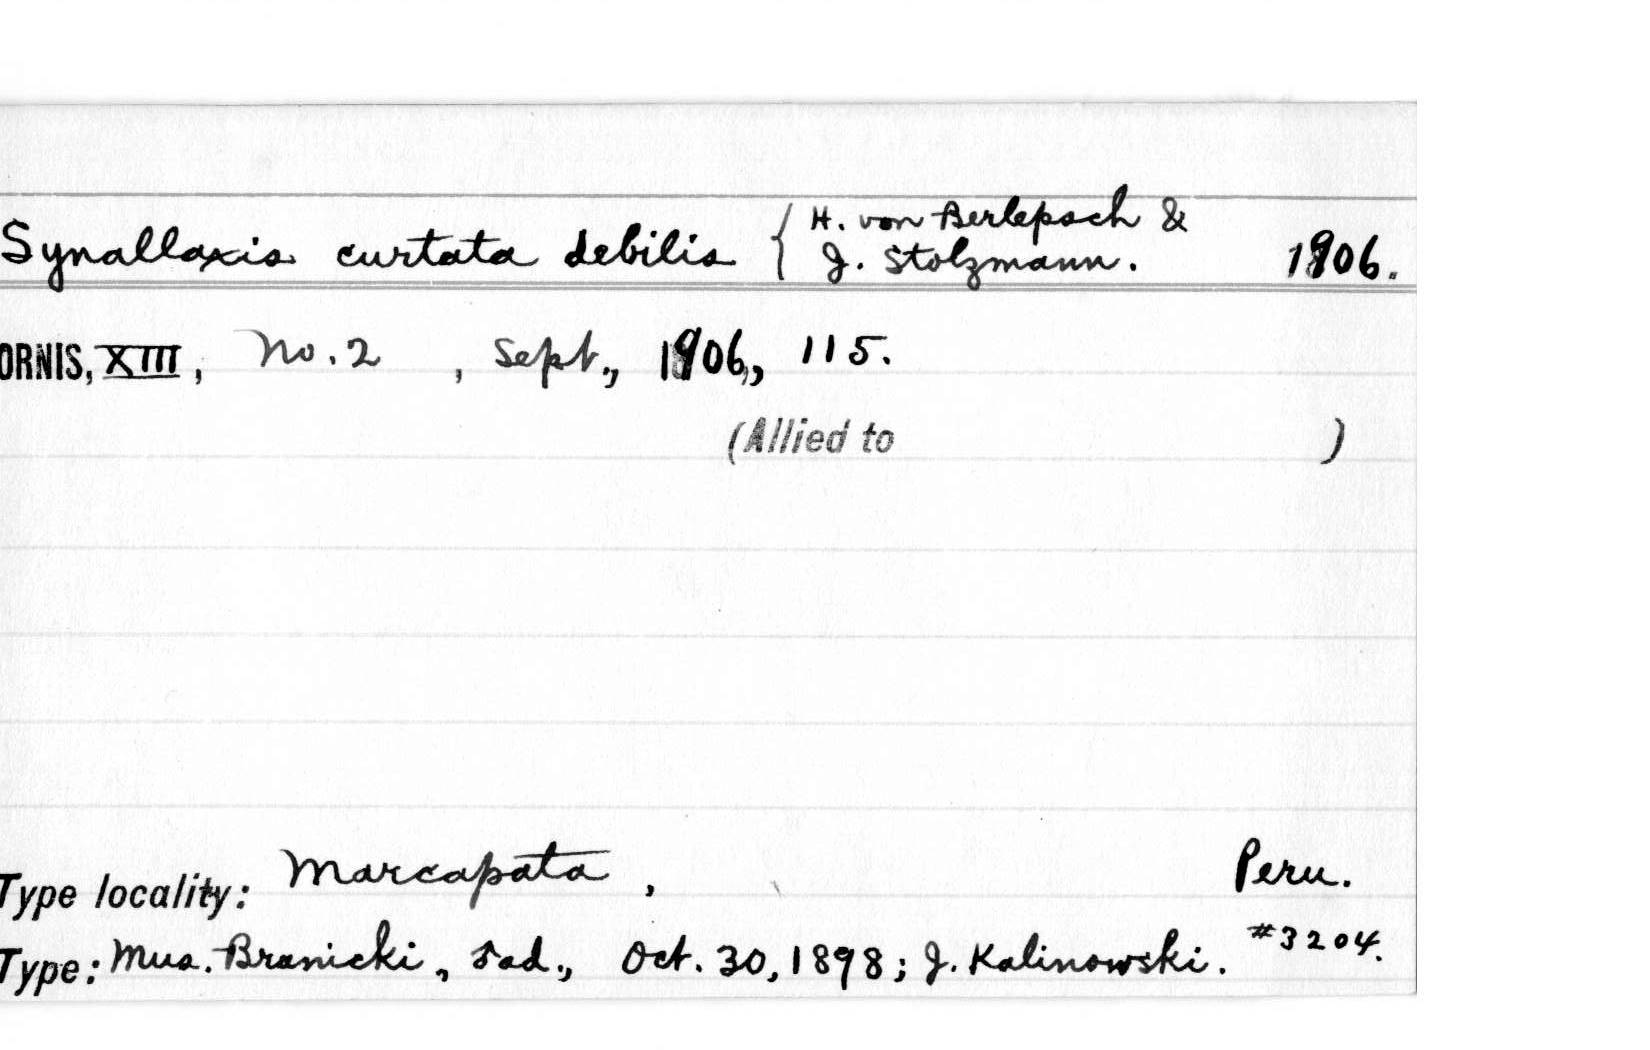 Synallaxis curtata debilis { H. von Berlepsch &
J. Stolzmann. 1906.
ORNIS, XIII, no. 2, Sept., 1906, 115.
(Allied to )
Type locality: Marcapata, Peru.
Type: Mus. Branicki, ad., Oct. 30, 1898; J. Kalinowski. #3204.